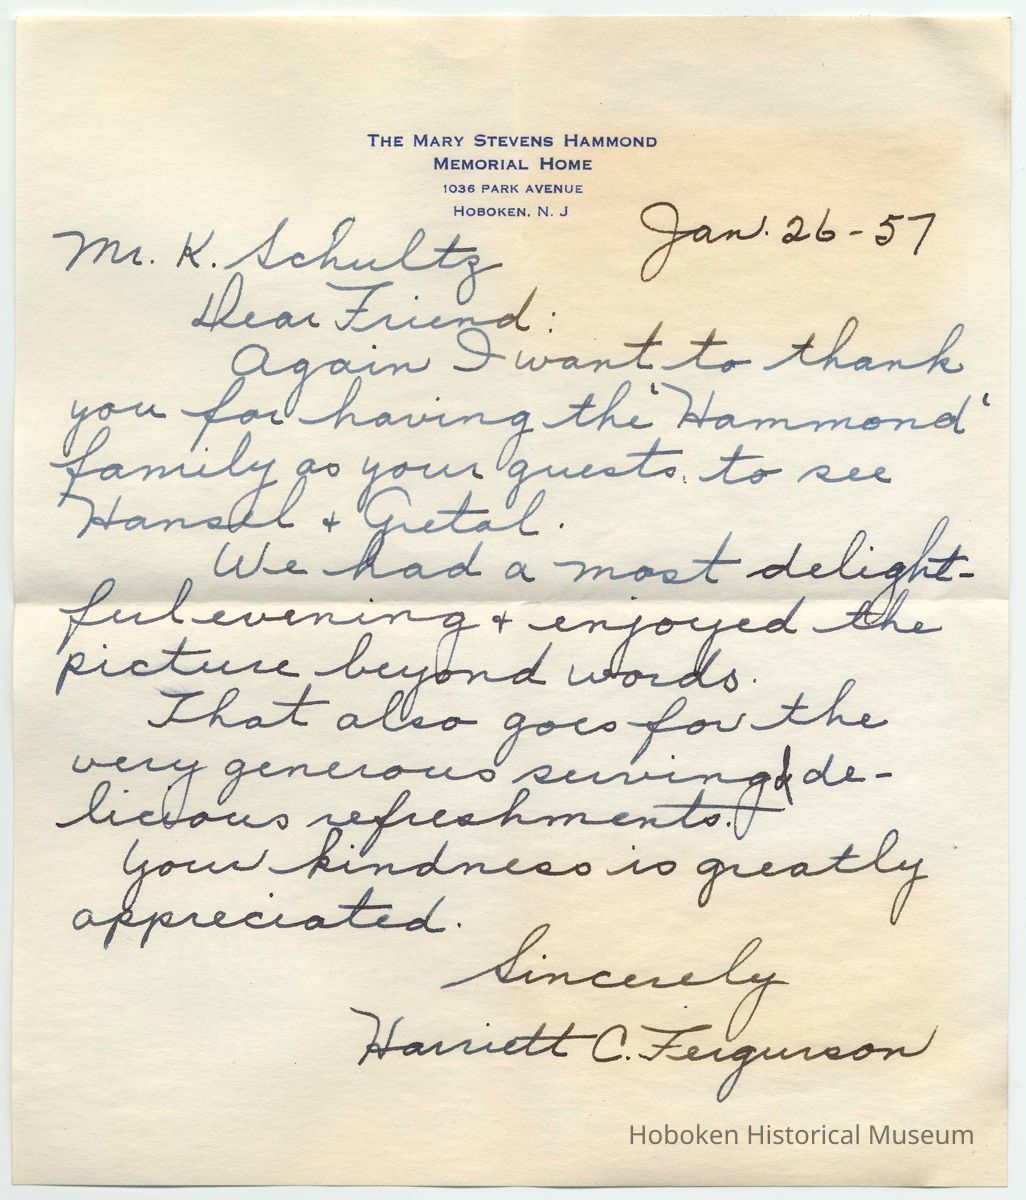 THE MARY STEVENS HAMMOND
MEMORIAL HOME
1036 PARK AVENUE
HOBOKEN, N. J
Jan. 26-57
Mr. K. Schultz
Dear Friend:
Again I want to thank
you for having the 'Hammond'
family as your guests. to see
Hansel + Gretal.
We had a most delight-
ful evening + enjoyed the
picture beyond words.
That also goes for the
very generous serving & de-
licious refreshments.
Your kindness is greatly
appreciated.
Sincerely
Harriett C. Fergurson
Hoboken Historical Museum